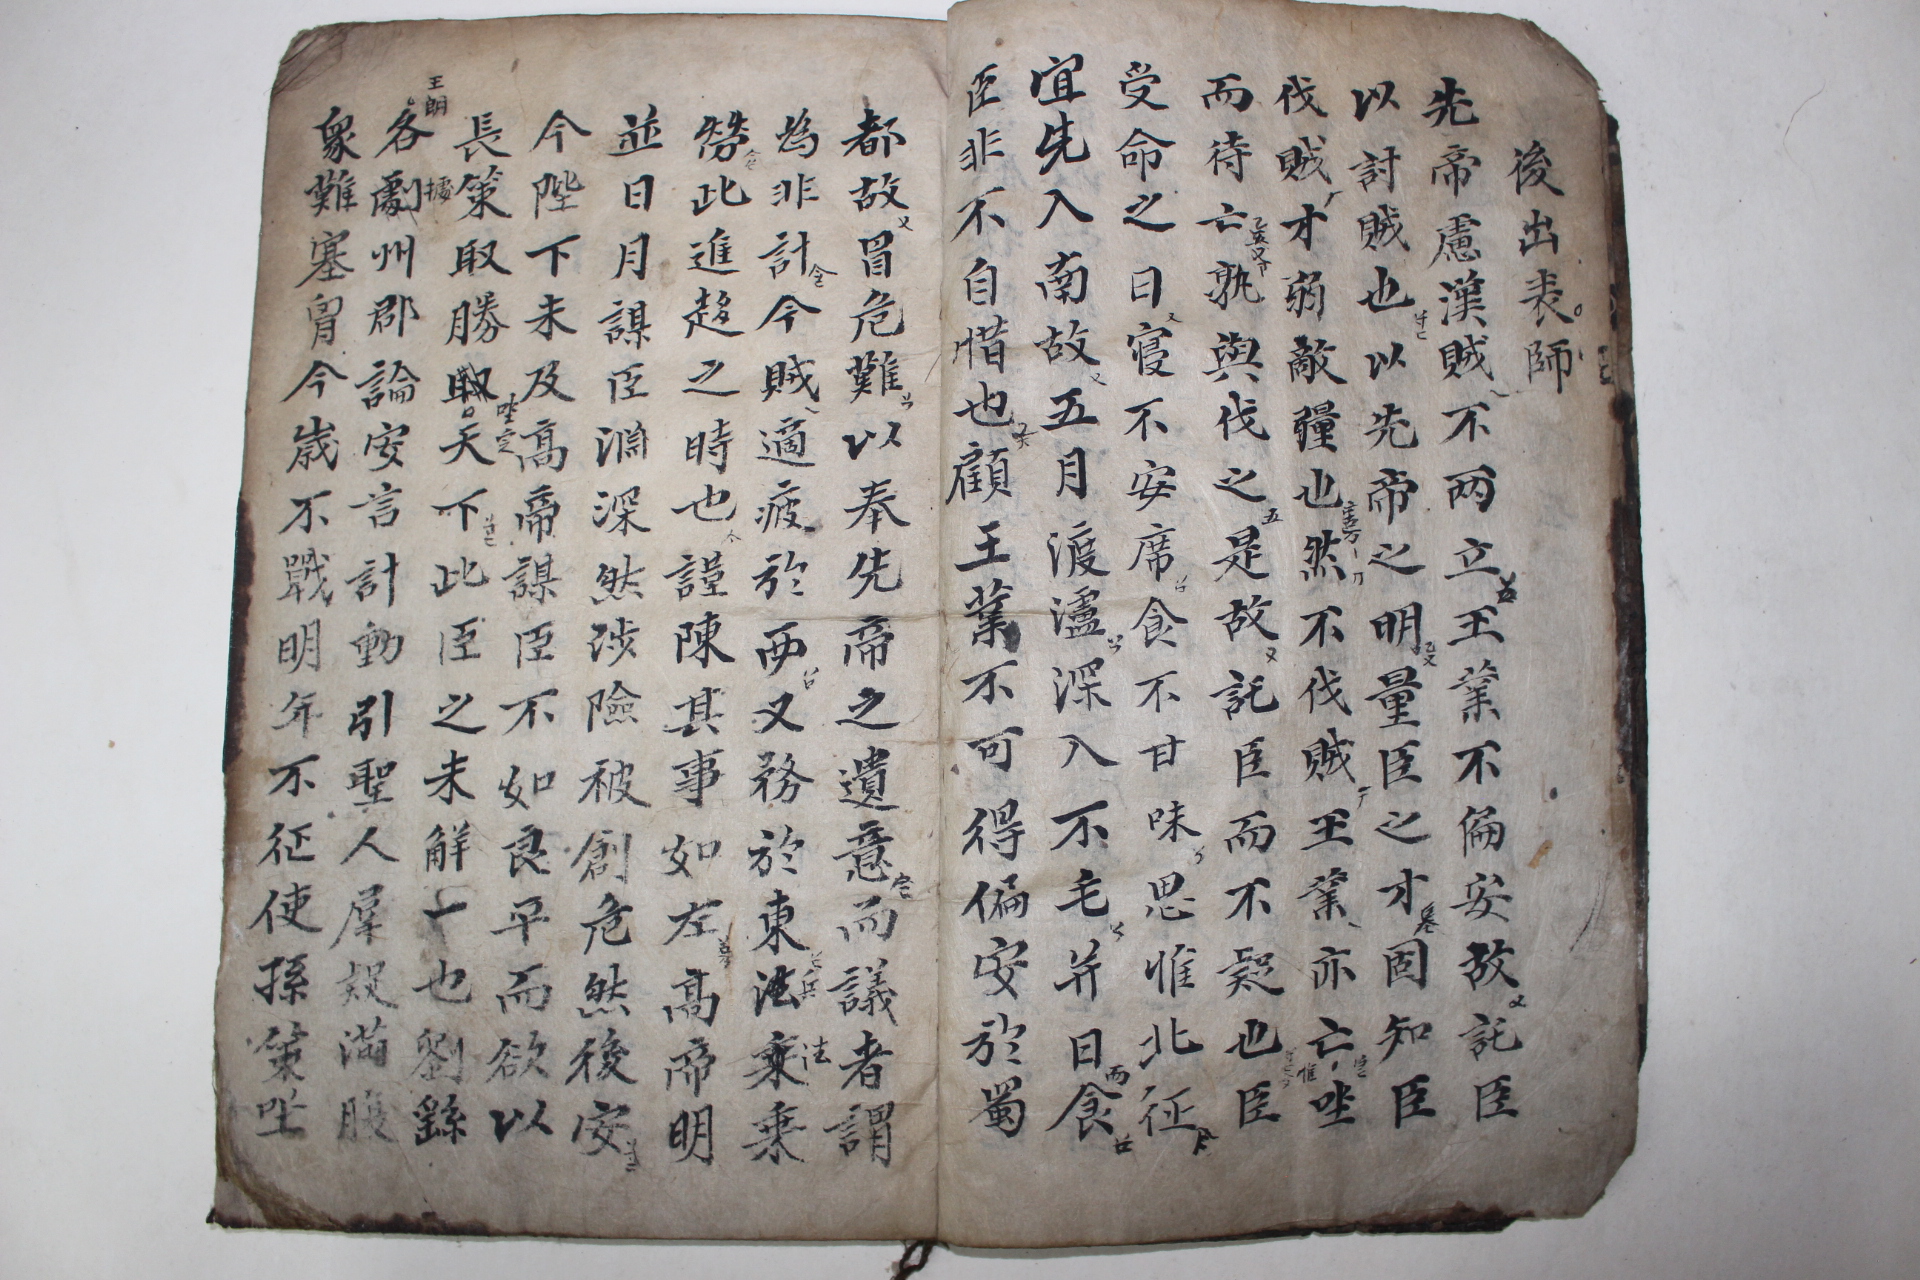 後出表師
先帝慮漢賊不兩立王業不偏安故託臣
以討賊也以先帝之明量臣之才固知臣
伐賊才弱敵彊也然不伐賊王業亦亡惟坐
而待亡孰與伐之是故託臣而不疑也臣
受命之日寢不安席食不甘味思惟北征
宜先入南故五月渡瀘深入不毛并日而食
臣非不自惜也顧王業不可得偏安於蜀
都故冒危難以奉先帝之遺意而議者謂
爲非計今賊適疲於西又務於東兵法乘乘
勞此進趍之時也謹陳其事如左高帝明
並日月謀臣淵深然涉險被創危然後安
今陛下未及高帝謀臣不如良平而欲以
長策取勝坐定天下此臣之未解一也劉繇
王朗各據劇州郡論安言計動引聖人羣疑滿腹
衆難塞胷今歲不戰明年不征使孫策坐